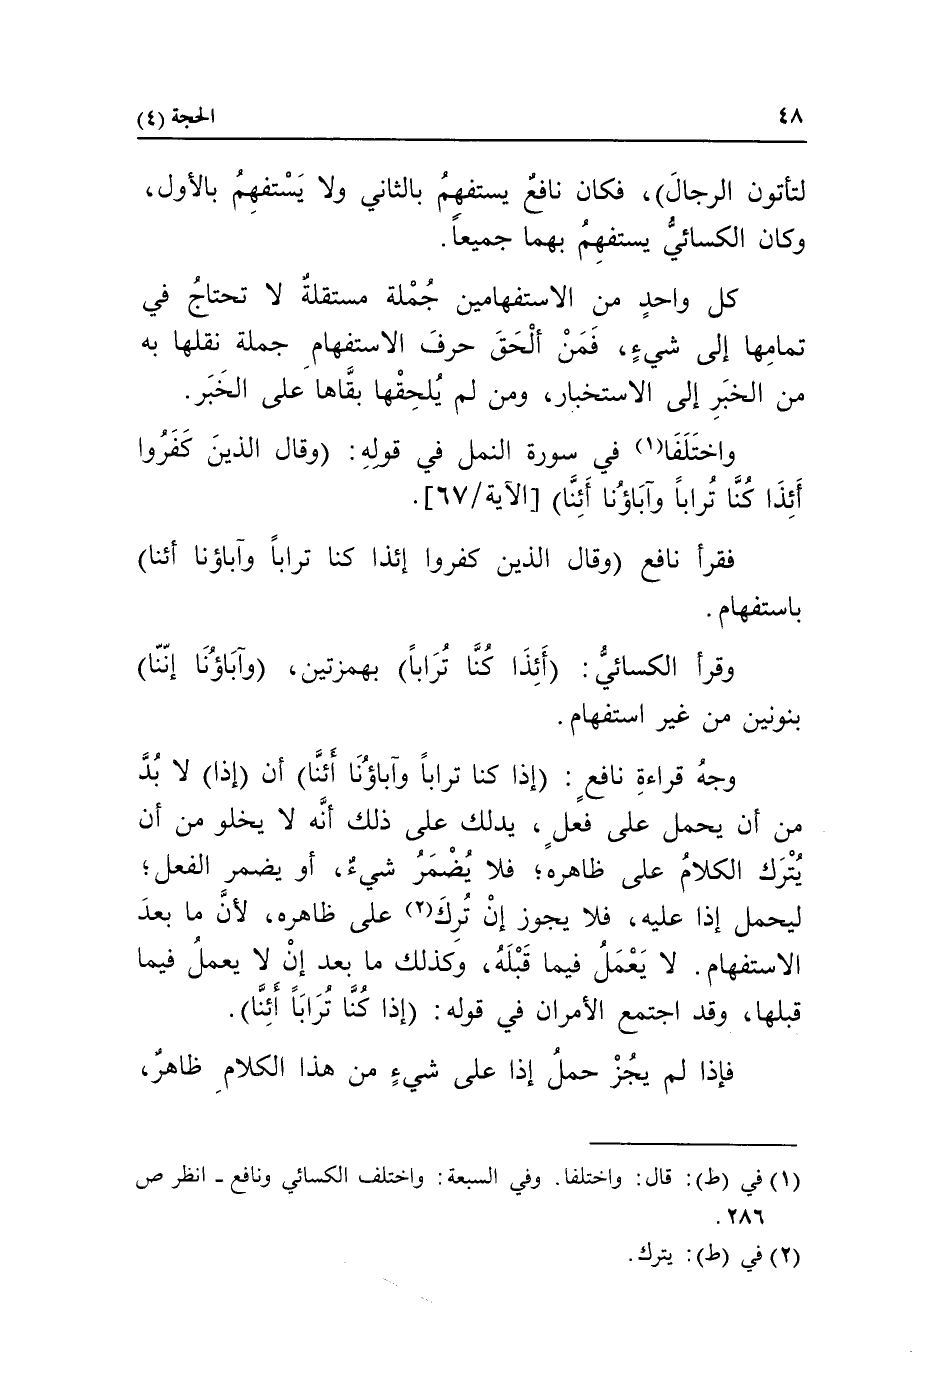 ٤٨
الحجة (٤)
لتأتون الرجالَ)، فكان نافعٌ يستفهمُ بالثاني ولا يَسْتفهِمُ بالأول،
وكان الكسائيُّ يستفهِمُ بهما جميعاً.
كل واحدٍ من الاستفهامين جُمْلة مستقلةٌ لا تحتاجُ في
تمامِها إلى شيءٍ، فَمَنْ ألْحَقَ حرفَ الاستفهامِ جملة نقلها به
من الخبَرِ إلى الاستخبار، ومن لم يُلحِقْها بقَّاها على الخَبَر.
واختَلَفَا(١) في سورة النمل في قولِهِ: (وقال الذينَ كَفَرُوا
أَئِذَا كُنَّا تُراباً وآبَاؤُنا أَئِنَّا) [الآية/٦٧].
فقرأ نافع (وقال الذين كفروا إئذا كنا تراباً وآباؤنا أئنا)
باستفهام.
وقرأ الكسائيُّ: (أَئِذَا كُنَّا تُرَاباً) بهمزتين، (وآبَاؤُنَا إنّنَّا)
بنونين من غير استفهام.
وجهُ قراءةِ نافعٍ: (إذا كنا تراباً وآباؤُنَا أَئنَّا) أن (إذا) لا بُدَّ
من أن يحمل على فعلٍ، يدلك على ذلك أنَّه لا يخلو من أن
يُتْرَك الكلامُ على ظاهره؛ فلا يُضْمَرُ شيءٌ، أو يضمر الفعل؛
ليحمل إذا عليه، فلا يجوز إنْ تُرِكَ(٢) على ظاهره، لأنَّ ما بعدَ
الاستفهام. لا يَعْمَلُ فيما قَبْلَهُ، وكذلك ما بعد إنْ لا يعملُ فيما
قبلها، وقد اجتمع الأمران في قوله: (إذا كُنَّا تُرَابَاً أَئِنَّا).
فإذا لم يجُزْ حملُ إذا على شيءٍ من هذا الكلامِ ظاهرٌ،
(١) في (ط): قال: واختلفا. وفي السبعة: واختلف الكسائي ونافع ـ انظر ص
٢٨٦.
(٢) في (ط): يترك.